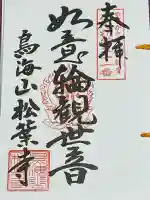 奉拝
如意輪観世音
鳥海山松葉寺